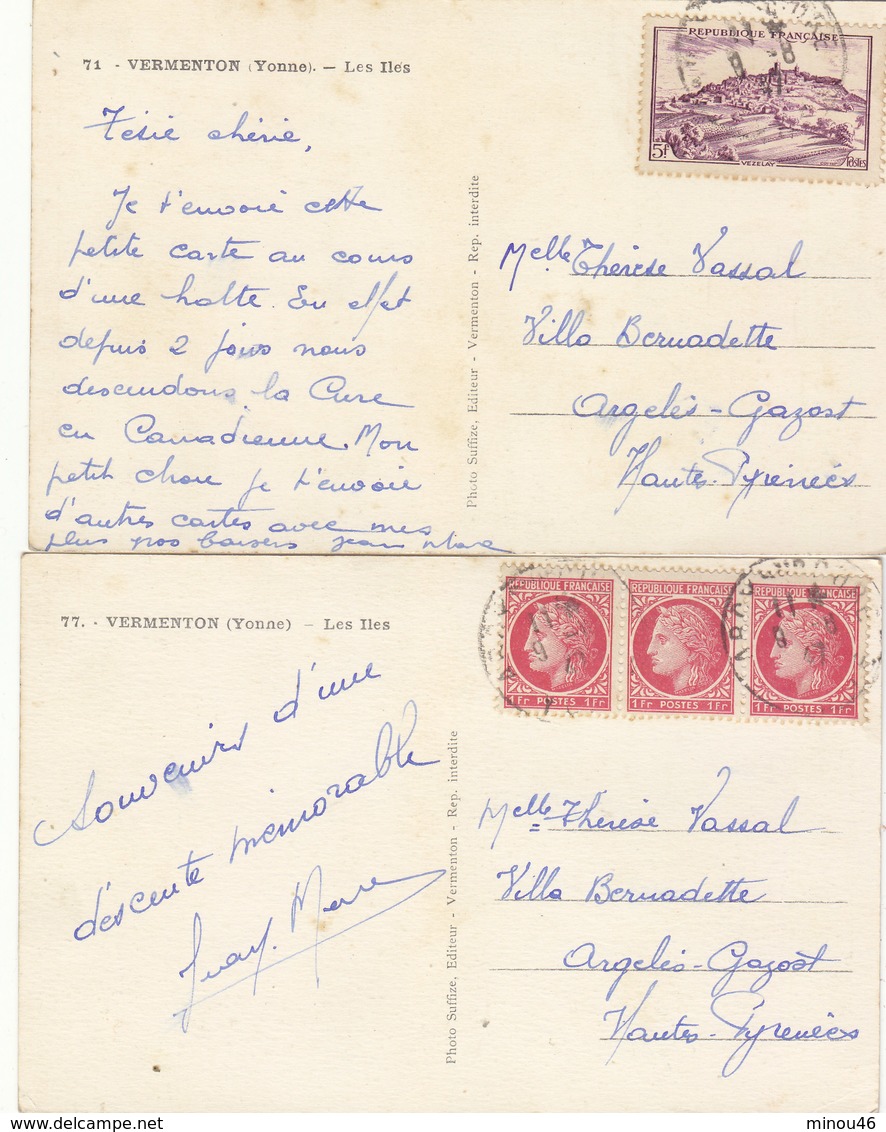 71 - VERMENTON (Yonne). — Les Iles
Tésie chérie,
Je t'envoie cette
petite carte au cours
d'une halte. En effet
depuis 2 jours nous
descendons la Cure
en Canadienne. Mon
petit chou je t'envoie
d'autres cartes avec mes
plus gros baisers Jean Marc
Photo Suffize, Editeur - Vermenton - Rep. interdite
REPUBLIQUE FRANÇAISE
5f
VEZELAY
Postes
Melle Thérèse Vassal
Villa Bernadette
Argelès-Gazost
Hautes-Pyrénées
77. - VERMENTON (Yonne) - Les Iles
Souvenirs d'une
déscente mémorable
Jean Marc
Photo Suffize, Editeur - Vermenton - Rep. interdite
REPUBLIQUE FRANÇAISE
REPUBLIQUE FRANÇAISE
REPUBLIQUE FRANÇAISE
1Fr POSTES 1Fr
1Fr POSTES 1Fr
1Fr POSTES 1Fr
Melle Thérèse Vassal
Villa Bernadette
Argelès-Gazost
Hautes-Pyrénées
minou46